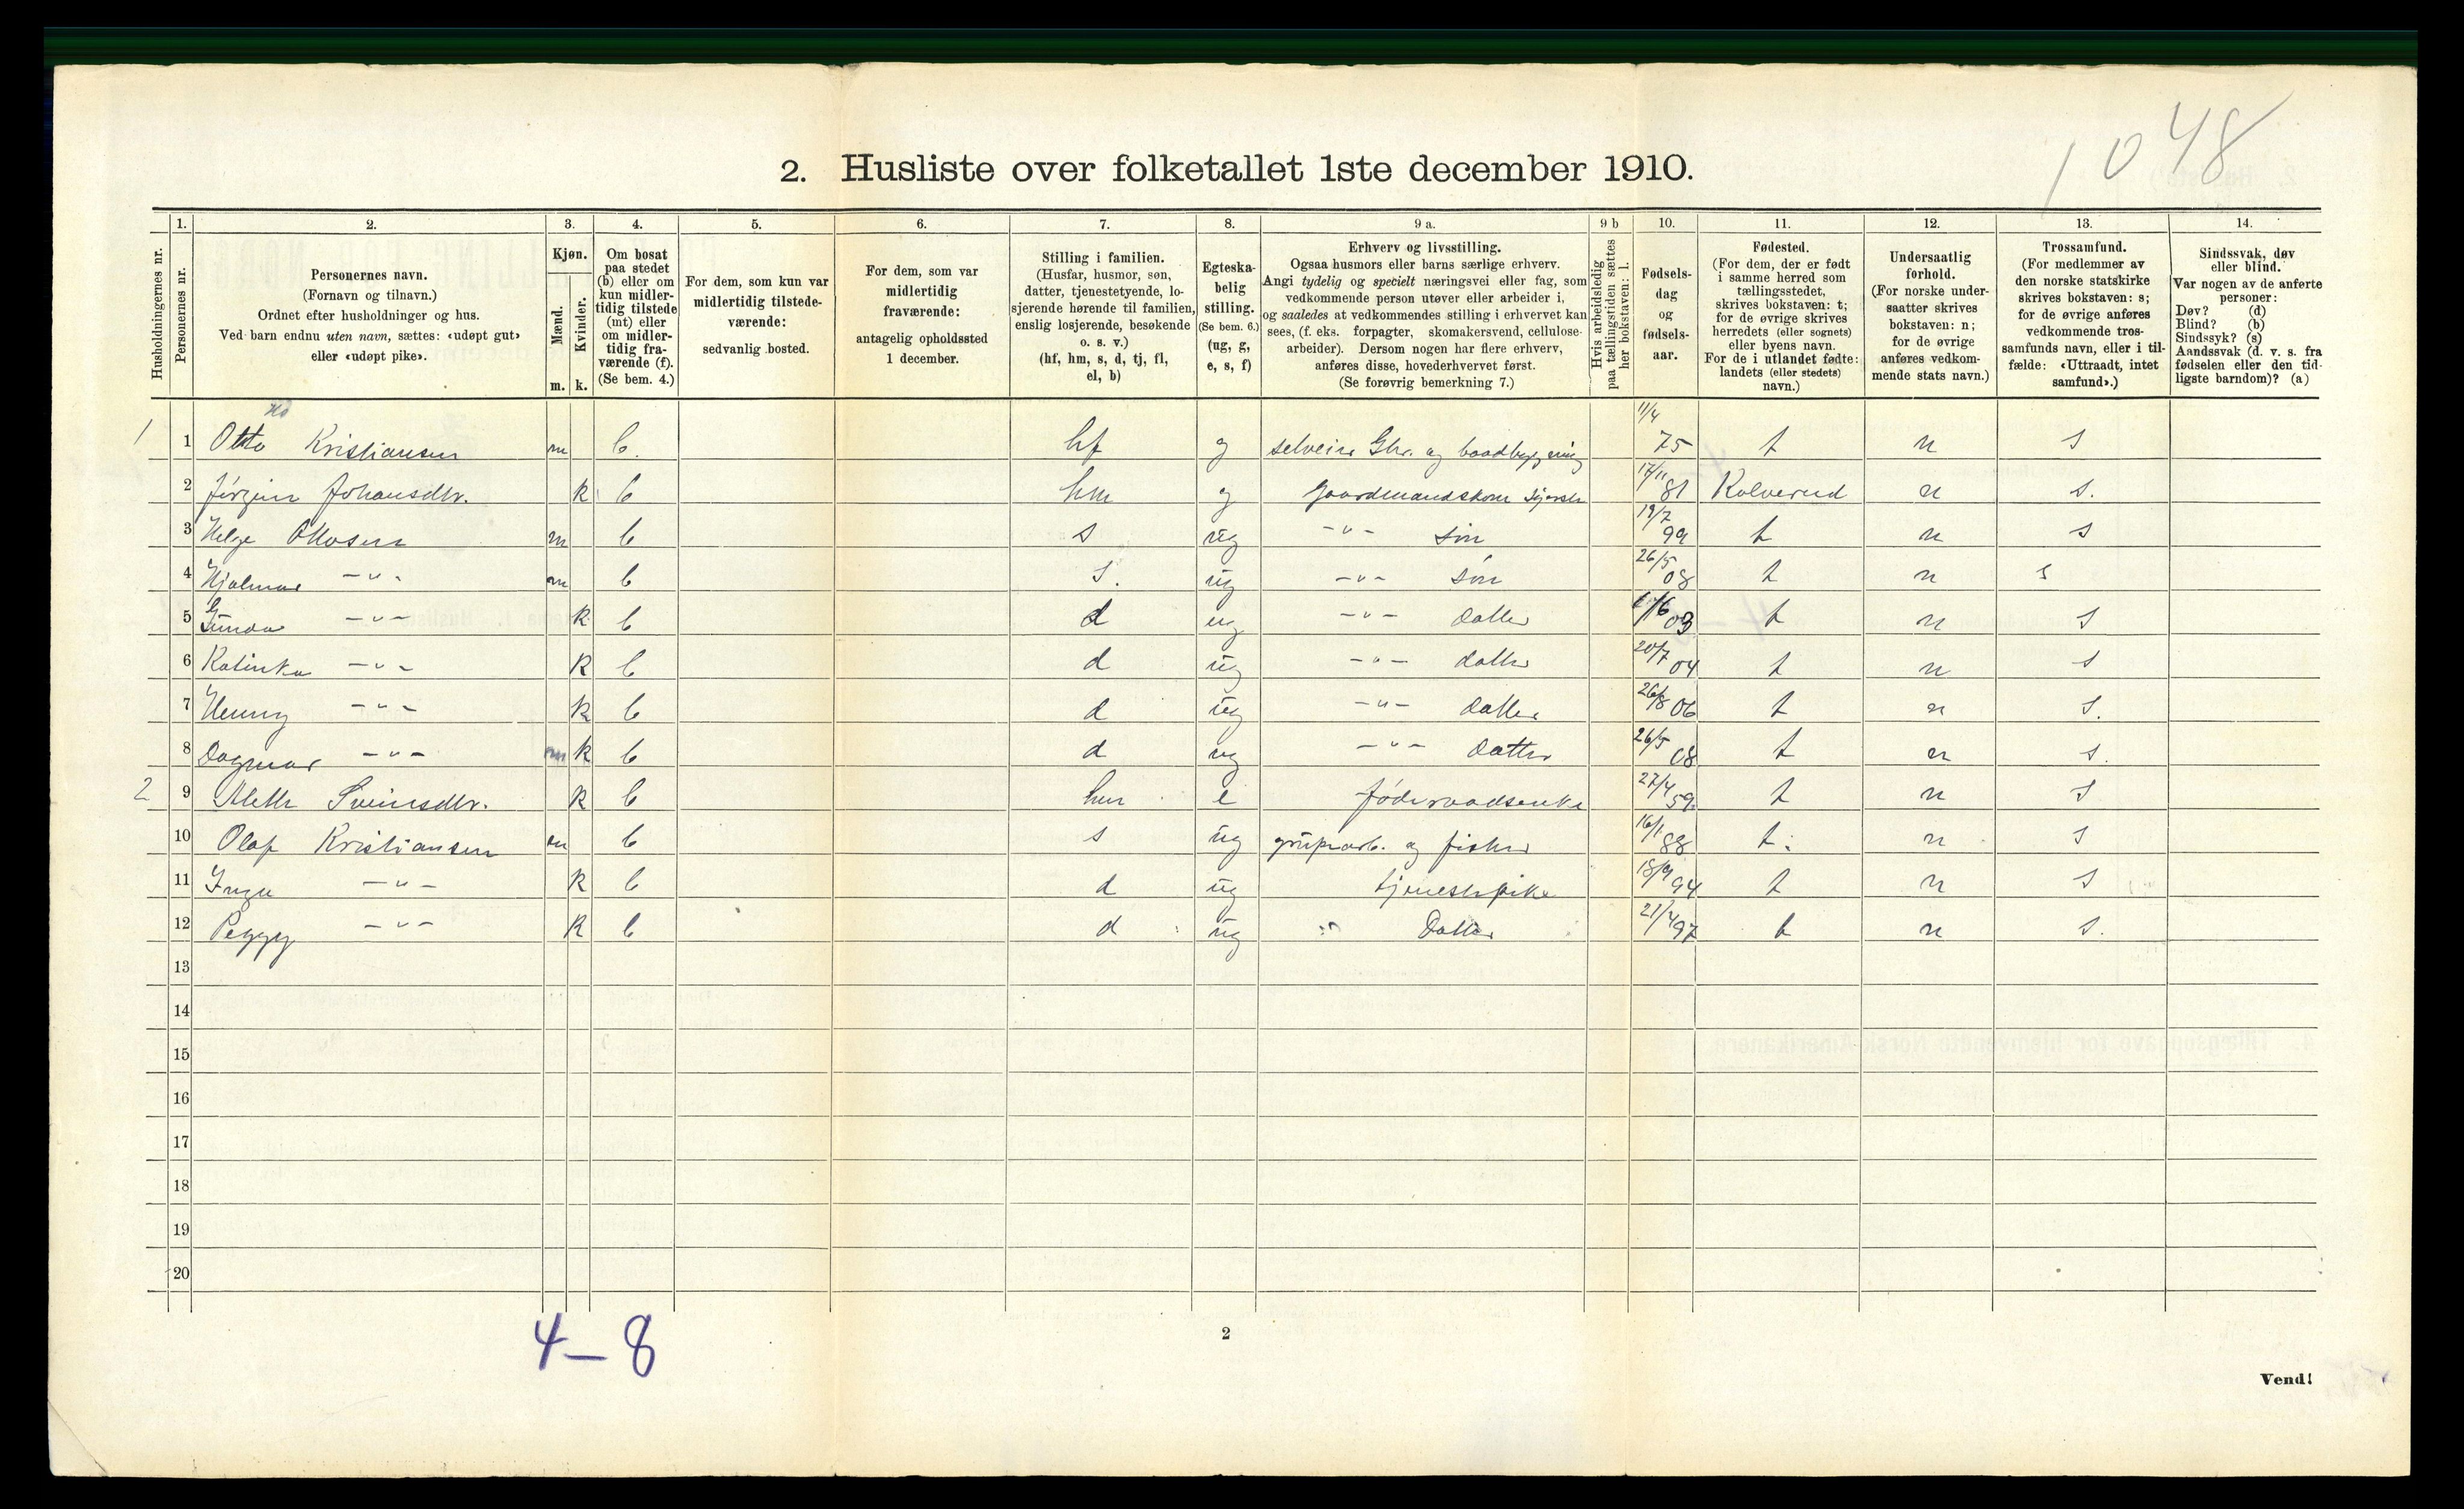 1048
2. Husliste over folketallet 1ste december 1910.
Husholdningernes nr.
1. Personernes nr.
2. Personernes navn.
(Fornavn og tilnavn.)
Ordnet efter husholdninger og hus.
Ved barn endnu uten navn, sættes: «udøpt gut»
eller «udøpt pike».
3. Kjøn.
Mænd. m.
Kvinder. k.
4. Om bosat
paa stedet
(b) eller om
kun midler-
tidig tilstede
(mt) eller
om midler-
tidig fra-
værende (f).
(Se bem. 4.)
5. For dem, som kun var
midlertidig tilstede-
værende:
sedvanlig bosted.
6. For dem, som var
midlertidig
fraværende:
antagelig opholdssted
1 december.
7. Stilling i familien.
(Husfar, husmor, søn,
datter, tjenestetyende, lo-
sjerende hørende til familien,
enslig losjerende, besøkende
o. s. v.)
(hf, hm, s, d, tj, fl,
el, b)
8. Egteska-
belig
stilling.
(Se bem. 6.)
(ug, g,
e, s, f)
9 a. Erhverv og livsstilling.
Ogsaa husmors eller barns særlige erhverv.
Angi tydelig og specielt næringsvei eller fag, som
vedkommende person utøver eller arbeider i,
og saaledes at vedkommendes stilling i erhvervet kan
sees, (f. eks. forpagter, skomakersvend, cellulose-
arbeider). Dersom nogen har flere erhverv,
anføres disse, hovederhvervet først.
(Se forøvrig bemerkning 7.)
9 b Hvis arbeidsledig
paa tællingstiden sættes
her bokstaven: l.
10. Fødsels-
dag
og
fødsels-
aar.
11. Fødested.
(For dem, der er født
i samme herred som
tællingsstedet,
skrives bokstaven: t;
for de øvrige skrives
herredets (eller sognets)
eller byens navn.
For de i utlandet fødte:
landets (eller stedets)
navn.)
12. Undersaatlig
forhold.
(For norske under-
saatter skrives
bokstaven: n;
for de øvrige
anføres vedkom-
mende stats navn.)
13. Trossamfund.
(For medlemmer av
den norske statskirke
skrives bokstaven: s;
for de øvrige anføres
vedkommende tros-
samfunds navn, eller i til-
fælde: «Uttraadt, intet
samfund».)
14. Sindssvak, døv
eller blind.
Var nogen av de anførte
personer:
Døv? (d)
Blind? (b)
Sindssyk? (s)
Aandssvak (d. v. s. fra
fødselen eller den tid-
ligste barndom)? (a)
1 1 Otto Kristiansen m b. hf g selveier Gbr. og baadbygning 11/4 75 t n s
2 Jørgine Johansdtr. k b hm g gaardmandskone 17/11 81 Kolverud n s.
3 Helge Ottosen m b s ug -"- søn 19/7 99 t n s
4 Hjalmar -"- m b s. ug -"- søn 26/5 08 t n s
5 Gunda -"- k b d ug -"- datter 03 t n s
6 Katinka -"- k b d ug -"- datter 20/7 04 t n s
7 Henny -"- k b d ug -"- datter 26/8 06 t n s.
8 Dagmar -"- k b d ug -"- datter 26/5 08 t n s.
2 9 Mette Sveinsdtr. k b hm e føderaadsenke 27/4 59 t n s
10 Olaf Kristiansen m b s ug grubearb. og fisker 16/1 88 t. n s
11 Inga -"- k b d ug tjenestepike 18/9 94 t n s
12 Peggy -"- k b d ug Datter 21/4 97 t n s.
13
14
15
16
17
18
19
20
4 - 8
2
Vend!